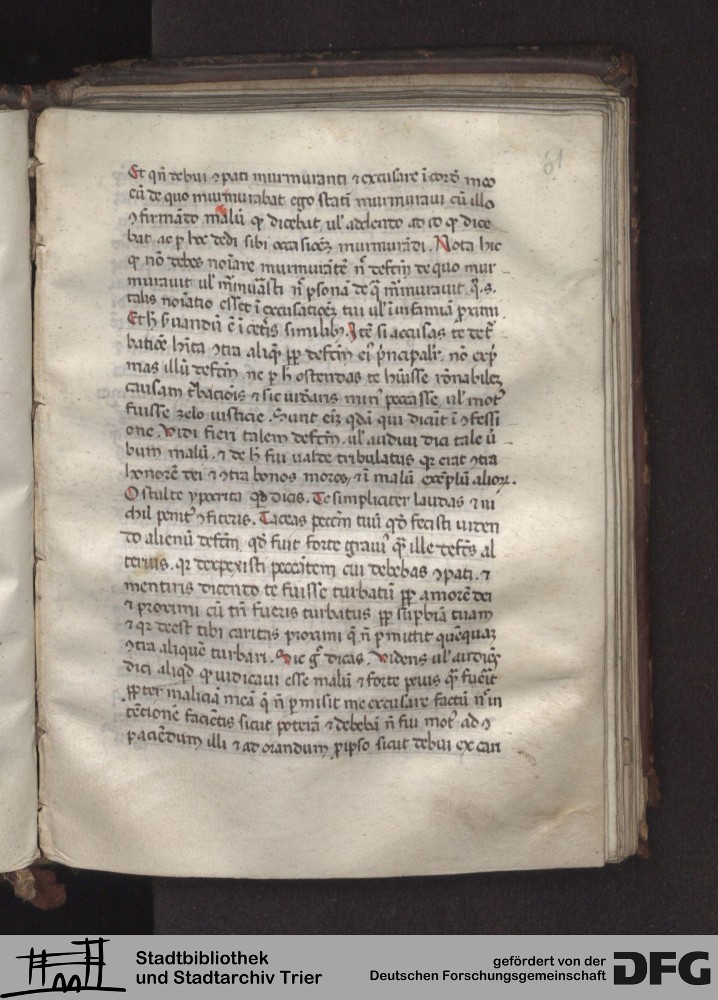 61
Et qn̄ debui ꝯpati murmuranti ⁊ excusare ī cord̄ meo
cū de quo murmurabat ego statī murmuraui cū illo
ꝯfirmādo malū qꝫ dicebat ul' addendo ad id qꝫ dice
bat ac ꝑ hoc dedi sibi occasionēz murmurādi. Nota hic
qꝫ nō debes noīare murmurātē nꝫ defectū de quo mur
murauit ul' murmurasti nꝫ ꝑsonā de qua murmurauit. q. s.
talis noīatio esset ī excusationēz tui ul' ī infamiā proximi
Et h̄ seruandū ē ī cetis similibꝫ. Itē si accusas te de
batice contra aliquē ꝓpter defectū eiꝫ principalr̄ nō expri
mas illū defectū ne ꝑ h̄ ostendas te huisse rōnabilez
causam ⁊ sic uidearis minꝫ peccasse ul' motꝫ
fuisse zelo iusticie. Sunt eīz qdā qui dicūt ī ꝯfessi
one. Uidi fieri talem defectū. ul' audiui dici tale u̅
bum malū. ⁊ de h̄ fui ualde tribulatus qꝛ erat ꝯtra
honorē dei ⁊ ꝯtra bonos mores, ⁊ ī malū exēplū alioꝝ.
O stulte ypocrita qd dicis. Te simpliciter laudas ⁊ ni
chil penitꝫ ꝯfiteris. Taceas peccm̄ tuū qd fecisti uiden
do alienū defectū. qd fuit forte grauiꝫ qꝫ ille defectꝫ al
terius. qꝛ despexisti peccātem cui debebas ꝯpati. ⁊
mentiris dicendo te fuisse turbatū ꝓpter amorē dei
⁊ proximi cū tn̄ fueris turbatus ꝓpter suꝑbiā tuam
⁊ qꝛ deest tibi caritas proximi q̄ nō ꝑmittit quēquaꝫ
ꝯtra aliquē turbari. Sic gꝫ dicas. Uidens ul' audiēs
dici aliqd qꝫ iudicaui esse malū ⁊ forte peius qꝫ fuerit
ꝓpter maliciā meā q̄ nō ꝑmisit me excusare factū nꝫ in
tētionē faciētis sicut poterā ⁊ debebā nō fui motꝫ ad ꝯ
paciēdum illi ⁊ ad orandum ꝓ ipso sicut debui ex cari
Stadtbibliothek
und Stadtarchiv Trier
gefördert von der
Deutschen Forschungsgemeinschaft
DFG